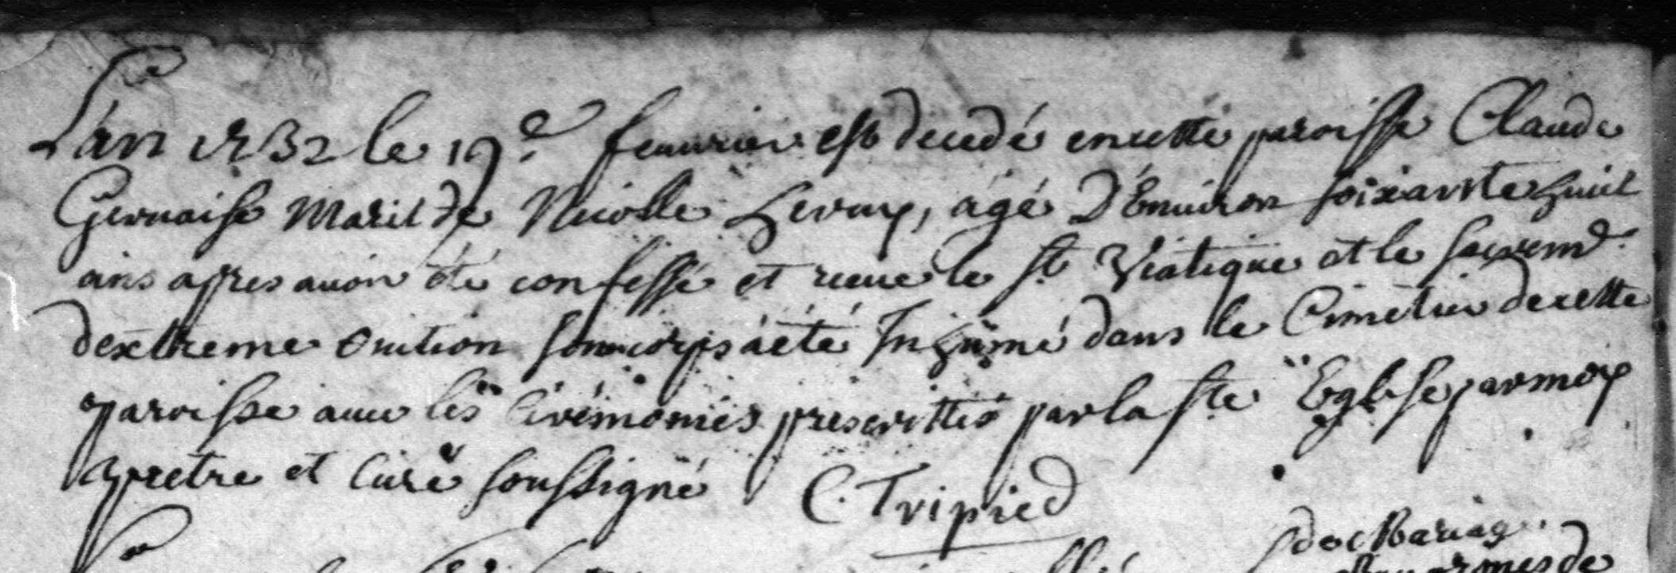 L'an 1732 le 19e feuurier est decedé encette paroisse Claude
Geruaise Marit de Nicolle Leroux, agé D'Enuiron soixante huit
ans apres auoir été confessé et receue le st Viatique et le sacremt
dextreme onction son corps áété Inhumé dans le Cimetier decette
paroisse auec les Cérémonies prescrittes parla ste Eglise parmoy
pretre et Curé soussigné C. Tripied